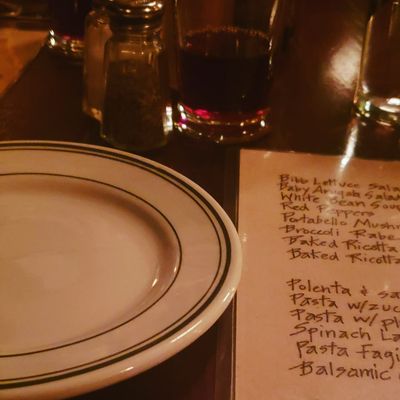 Bibb Lettuce Sala
Baby Arugula Salad
White Bean Soup
Red Peppers
Portabello Mushr
Broccoli Rabe
Baked Ricotta
Baked Ricotta
Polenta & sa
Pasta w/zuc
Pasta w/ pl
Spinach La
Pasta Fagi
Balsamic